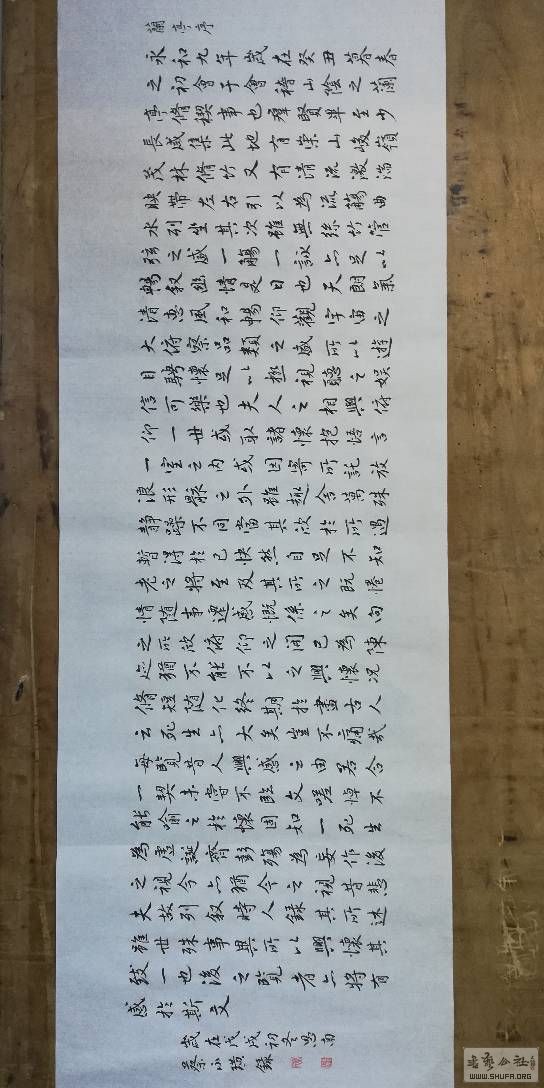 蘭亭序
永和九年歲在癸丑暮春
之初會于會稽山陰之蘭
亭脩禊事也羣賢畢至少
長咸集此地有崇山峻嶺
茂林脩竹又有清流激湍
映帶左右引以為流觴曲
水列坐其次雖無絲竹管
弦之盛一觴一詠亦足以
暢叙幽情是日也天朗氣
清惠風和暢仰觀宇宙之
大俯察品類之盛所以遊
目騁懷足以極視聽之娛
信可樂也夫人之相與俯
仰一世或取諸懷抱悟言
一室之内或因寄所託放
浪形骸之外雖趣舍萬殊
靜躁不同當其欣於所遇
暫得於己快然自足不知
老之將至及其所之既惓
情隨事遷感慨係之矣向
之所欣俯仰之間已為陳
迹猶不能不以之興懷況
脩短隨化終期於盡古人
云死生亦大矣豈不痛哉
每覽昔人興感之由若合
一契未嘗不臨文嗟悼不
能喻之於懷固知一死生
為虛誕齊彭殤為妄作後
之視今亦猶今之視昔悲
夫故列叙時人錄其所述
雖世殊事異所以興懷其
致一也後之覽者亦將有
感於斯文
歲在戊戌初冬思南
錄
書藝公社
WWW.SHUFA.ORG